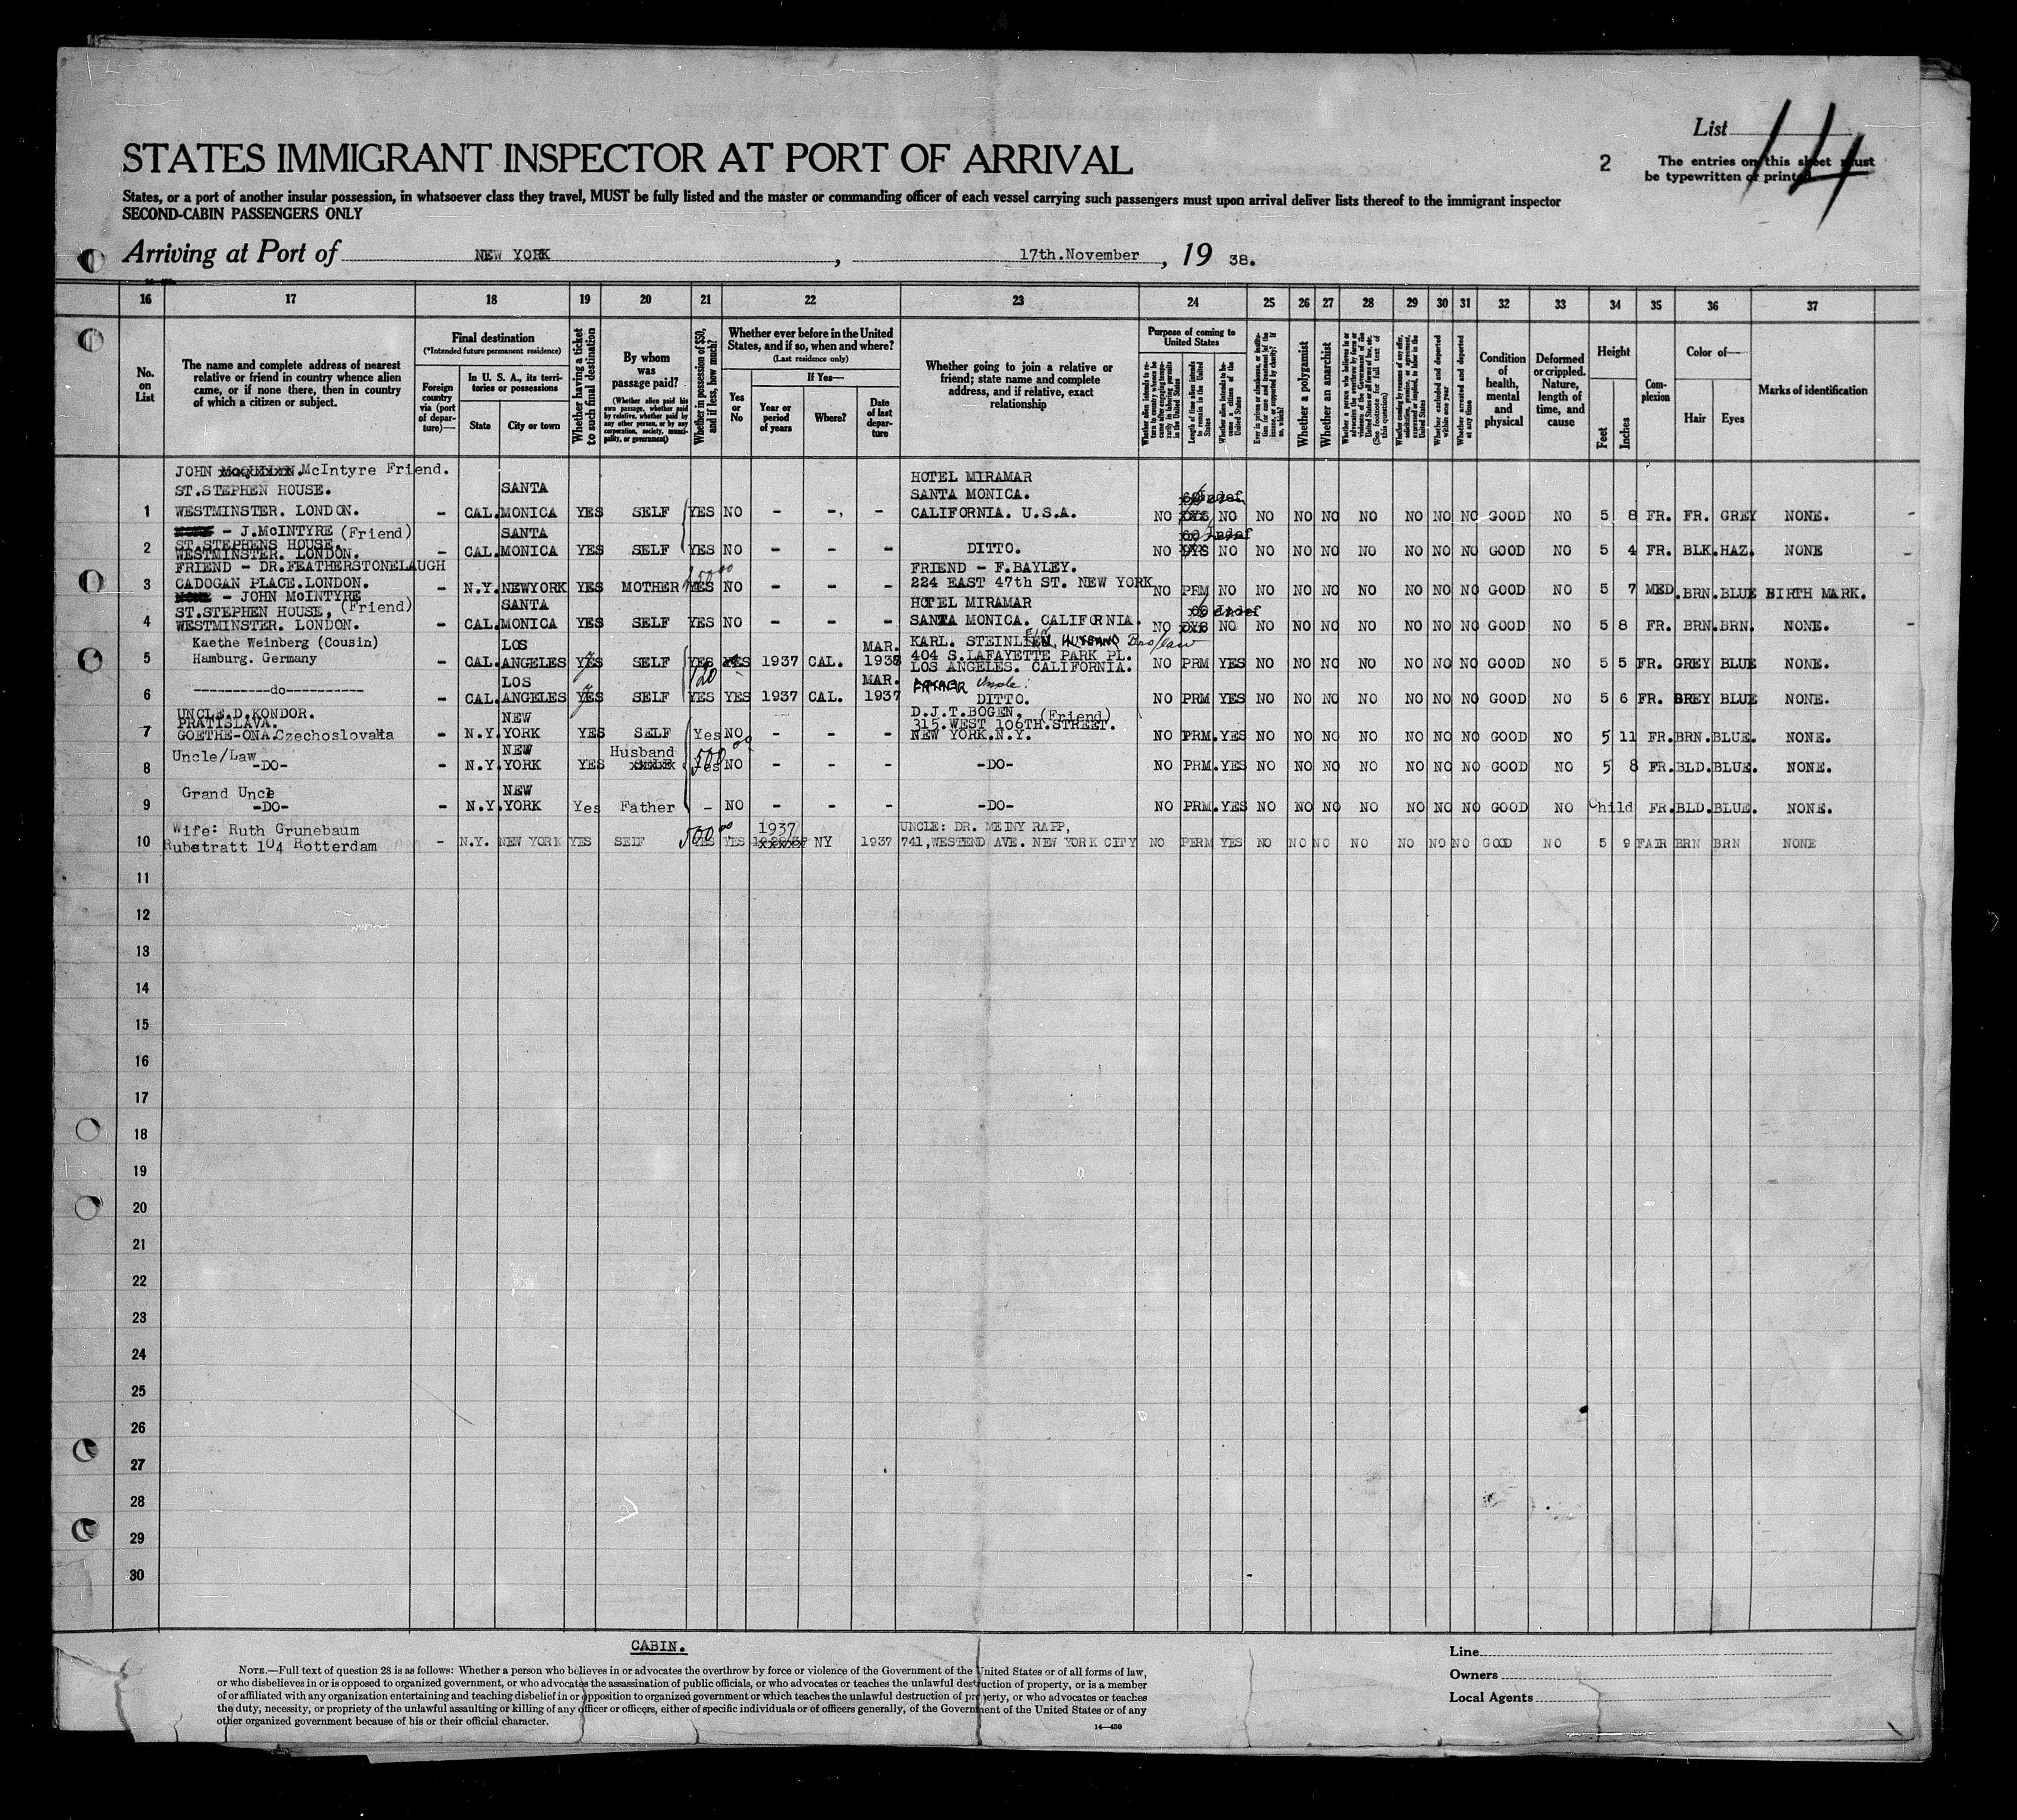 List 14
STATES IMMIGRANT INSPECTOR AT PORT OF ARRIVAL
2
The entries on this sheet must
be typewritten or printed.
States, or a port of another insular possession, in whatsoever class they travel, MUST be fully listed and the master or commanding officer of each vessel carrying such passengers must upon arrival deliver lists thereof to the immigrant inspector
SECOND-CABIN PASSENGERS ONLY
Arriving at Port of NEW YORK, 17th.November, 19 38.
16 17 18 19 20 21 22 23 24 25 26 27 28 29 30 31 32 33 34 35 36 37
No. on List
The name and complete address of nearest relative or friend in country whence alien came, or if none there, then in country of which a citizen or subject.
Final destination
(*Intended future permanent residence)
Foreign country via (port of departure)—
In U. S. A., its territories or possessions
State
City or town
Whether having a ticket to such final destination
By whom was passage paid?
(Whether alien paid his own passage, whether paid by relative, whether paid by any other person, or by any corporation, society, municipality, or government)
Whether in possession of $50, and if less, how much?
Whether ever before in the United States, and if so, when and where?
(Last residence only)
Yes or No
If Yes—
Year or period of years
Where?
Date of last departure
Whether going to join a relative or friend; state name and complete address, and if relative, exact relationship
Purpose of coming to United States
Whether alien intends to return to country whence he came after engaging temporarily in laboring pursuits in the United States
Length of time alien intends to remain in the United States
Whether alien intends to become a citizen of the United States
Ever in prison or almshouse, or institution for care and treatment of the insane, or supported by charity? If so, which?
Whether a polygamist
Whether an anarchist
Whether a person who believes in or advocates the overthrow by force or violence of the Government of the United States or all forms of law, etc. (See footnote for full text of this question)
Whether coming by reason of any offer, solicitation, promise, or agreement, expressed or implied, to labor in the United States
Whether excluded and deported within one year
Whether arrested and deported at any time
Condition of health, mental and physical
Deformed or crippled. Nature, length of time, and cause
Height
Feet
Inches
Complexion
Color of—
Hair
Eyes
Marks of identification
JOHN McIntyre Friend.
ST.STEPHEN HOUSE.
1 WESTMINSTER. LONDON. - CAL. SANTA MONICA YES SELF YES NO - -, - HOTEL MIRAMAR SANTA MONICA. CALIFORNIA. U.S.A. NO Indef NO NO NO NO NO NO NO NO GOOD NO 5 8 FR. FR. GREY NONE.
- J.McINTYRE (Friend)
ST.STEPHENS HOUSE.
2 WESTMINSTER. LONDON. - CAL. SANTA MONICA YES SELF YES NO - - - DITTO. NO 60 Indef DYS NO NO NO NO NO NO NO NO GOOD NO 5 4 FR. BLK. HAZ. NONE
FRIEND - DR.FEATHERSTONELAUGH
3 CADOGAN PLACE.LONDON. - N.Y. NEWYORK YES MOTHER YES NO - - - FRIEND - F.BAYLEY. 224 EAST 47th ST. NEW YORK NO PRM NO NO NO NO NO NO NO NO GOOD NO 5 7 MED. BRN. BLUE BIRTH MARK.
- JOHN McINTYRE
ST.STEPHEN HOUSE, (Friend)
4 WESTMINSTER. LONDON. - CAL. SANTA MONICA YES SELF YES NO - - - HOTEL MIRAMAR SANTA MONICA. CALIFORNIA. NO 60 Indef DYS NO NO NO NO NO NO NO NO GOOD NO 5 8 FR. BRN. BRN. NONE.
Kaethe Weinberg (Cousin)
5 Hamburg. Germany - CAL. LOS ANGELES YES SELF YES YES 1937 CAL. MAR. 1938 KARL. STEINLIEN, HUSBAND Bro/law 404 S.LAFAYETTE PARK PL. LOS ANGELES. CALIFORNIA. NO PRM YES NO NO NO NO NO NO NO GOOD NO 5 5 FR. GREY BLUE NONE.
6 ----------do---------- - CAL. LOS ANGELES YES SELF 120 YES YES 1937 CAL. MAR. 1937 FATHER Uncle: DITTO. NO PRM YES NO NO NO NO NO NO NO GOOD NO 5 6 FR. GREY BLUE NONE.
UNCLE.D.KONDOR.
PRATISLAVA.
7 GOETHE-ONA.Czechoslovakia - N.Y. NEW YORK YES SELF Yes NO - - - D.J.T.BOGEN, (Friend) 315.WEST 106TH.STREET. NEW YORK.N.Y. NO PRM. YES NO NO NO NO NO NO NO GOOD NO 5 11 FR. BRN. BLUE. NONE.
8 Uncle/Law -DO- - N.Y. NEW YORK YES Husband 500 00 Yes NO - - - -DO- NO PRM. YES NO NO NO NO NO NO NO GOOD NO 5 8 FR. BLD. BLUE. NONE.
9 Grand Uncle -DO- - N.Y. NEW YORK Yes Father - NO - - - -DO- NO PRM. YES NO NO NO NO NO NO NO GOOD NO Child FR. BLD. BLUE. NONE.
Wife: Ruth Grunebaum
10 Rubstratt 104 Rotterdam - N.Y. NEW YORK YES SELF 500 00 YES YES 1937 NY 1937 UNCLE: DR. MEINY RAPP, 741,WESTEND AVE. NEW YORK CITY NO PERM YES NO NO NO NO NO NO NO GOOD NO 5 9 FAIR BRN BRN NONE
11
12
13
14
15
16
17
18
19
20
21
22
23
24
25
26
27
28
29
30
CABIN.
NOTE.—Full text of question 28 is as follows: Whether a person who believes in or advocates the overthrow by force or violence of the Government of the United States or of all forms of law,
or who disbelieves in or is opposed to organized government, or who advocates the assassination of public officials, or who advocates or teaches the unlawful destruction of property, or is a member
of or affiliated with any organization entertaining and teaching disbelief in or opposition to organized government or which teaches the unlawful destruction of property, or who advocates or teaches
the duty, necessity, or propriety of the unlawful assaulting or killing of any officer or officers, either of specific individuals or of officers generally, of the Government of the United States or of any
other organized government because of his or their official character.
14—430
Line
Owners
Local Agents